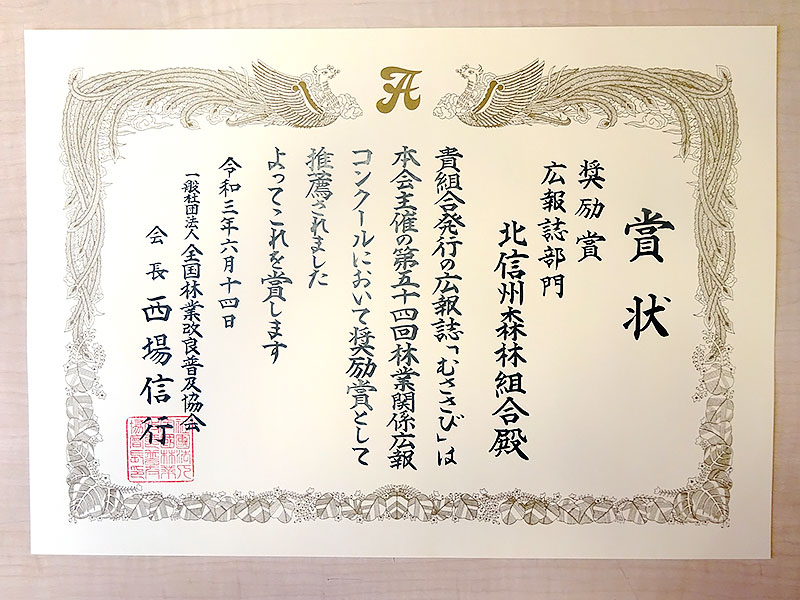 賞状
奨励賞
広報誌部門
北信州森林組合殿
貴組合発行の広報誌「むささび」は
本会主催の第五十四回林業関係広報
コンクールにおいて奨励賞として
推薦されました
よってこれを賞します
令和三年六月十四日
一般社団法人全国林業改良普及協会
会長 西場信行